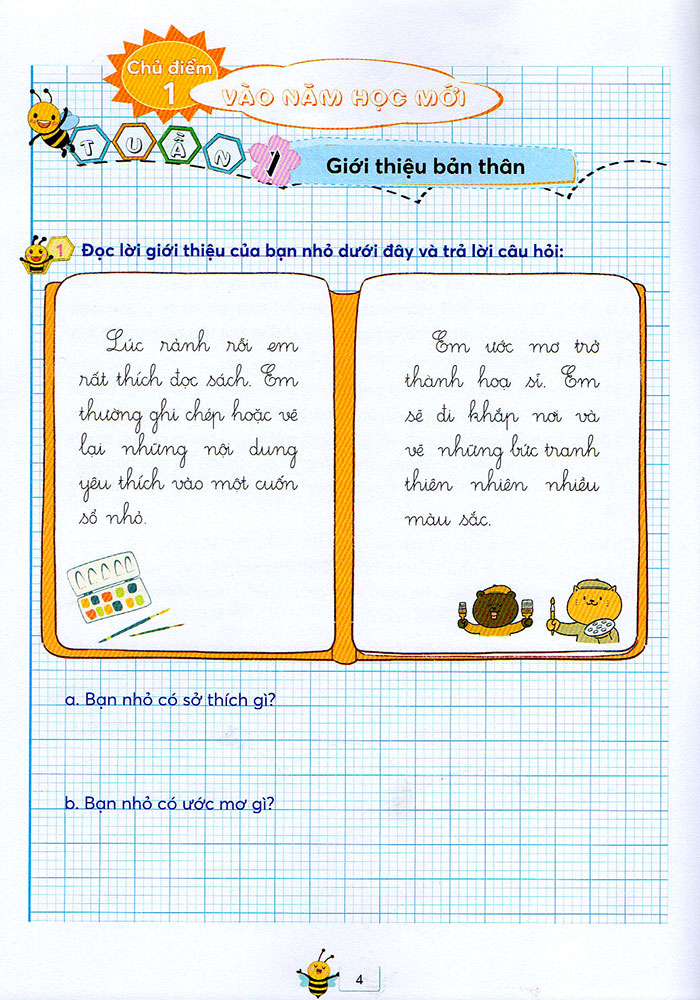 Chủ điểm
1
VÀO NĂM HỌC MỚI
TUẦN 1
Giới thiệu bản thân
1 Đọc lời giới thiệu của bạn nhỏ dưới đây và trả lời câu hỏi:
Lúc rành rỗi em
rất thích đọc sách. Em
thường ghi chép hoặc vẽ
lại những nội dung
yêu thích vào một cuốn
sổ nhỏ.
Em ước mơ trở
thành hoạ sĩ. Em
sẽ đi khắp nơi và
vẽ những bức tranh
thiên nhiên nhiều
màu sắc.
a. Bạn nhỏ có sở thích gì?
b. Bạn nhỏ có ước mơ gì?
4